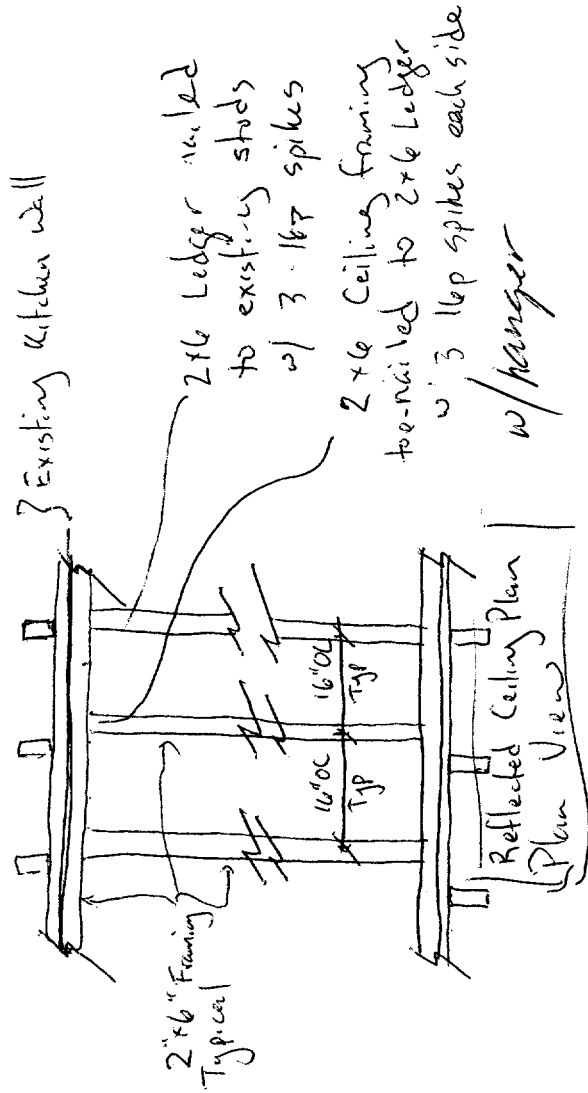 } Existing Kitchen Wall
2x6 Ledger nailed
to existing studs
w/ 3 - 16p spikes
2x6 Ceiling framing
toe-nailed to 2x6 Ledger
w/ 3 16p spikes each side
w/ hanger
2"x6" Framing
Typical
16"OC
Typ
16"OC
Typ
Reflected Ceiling Plan
Plan View